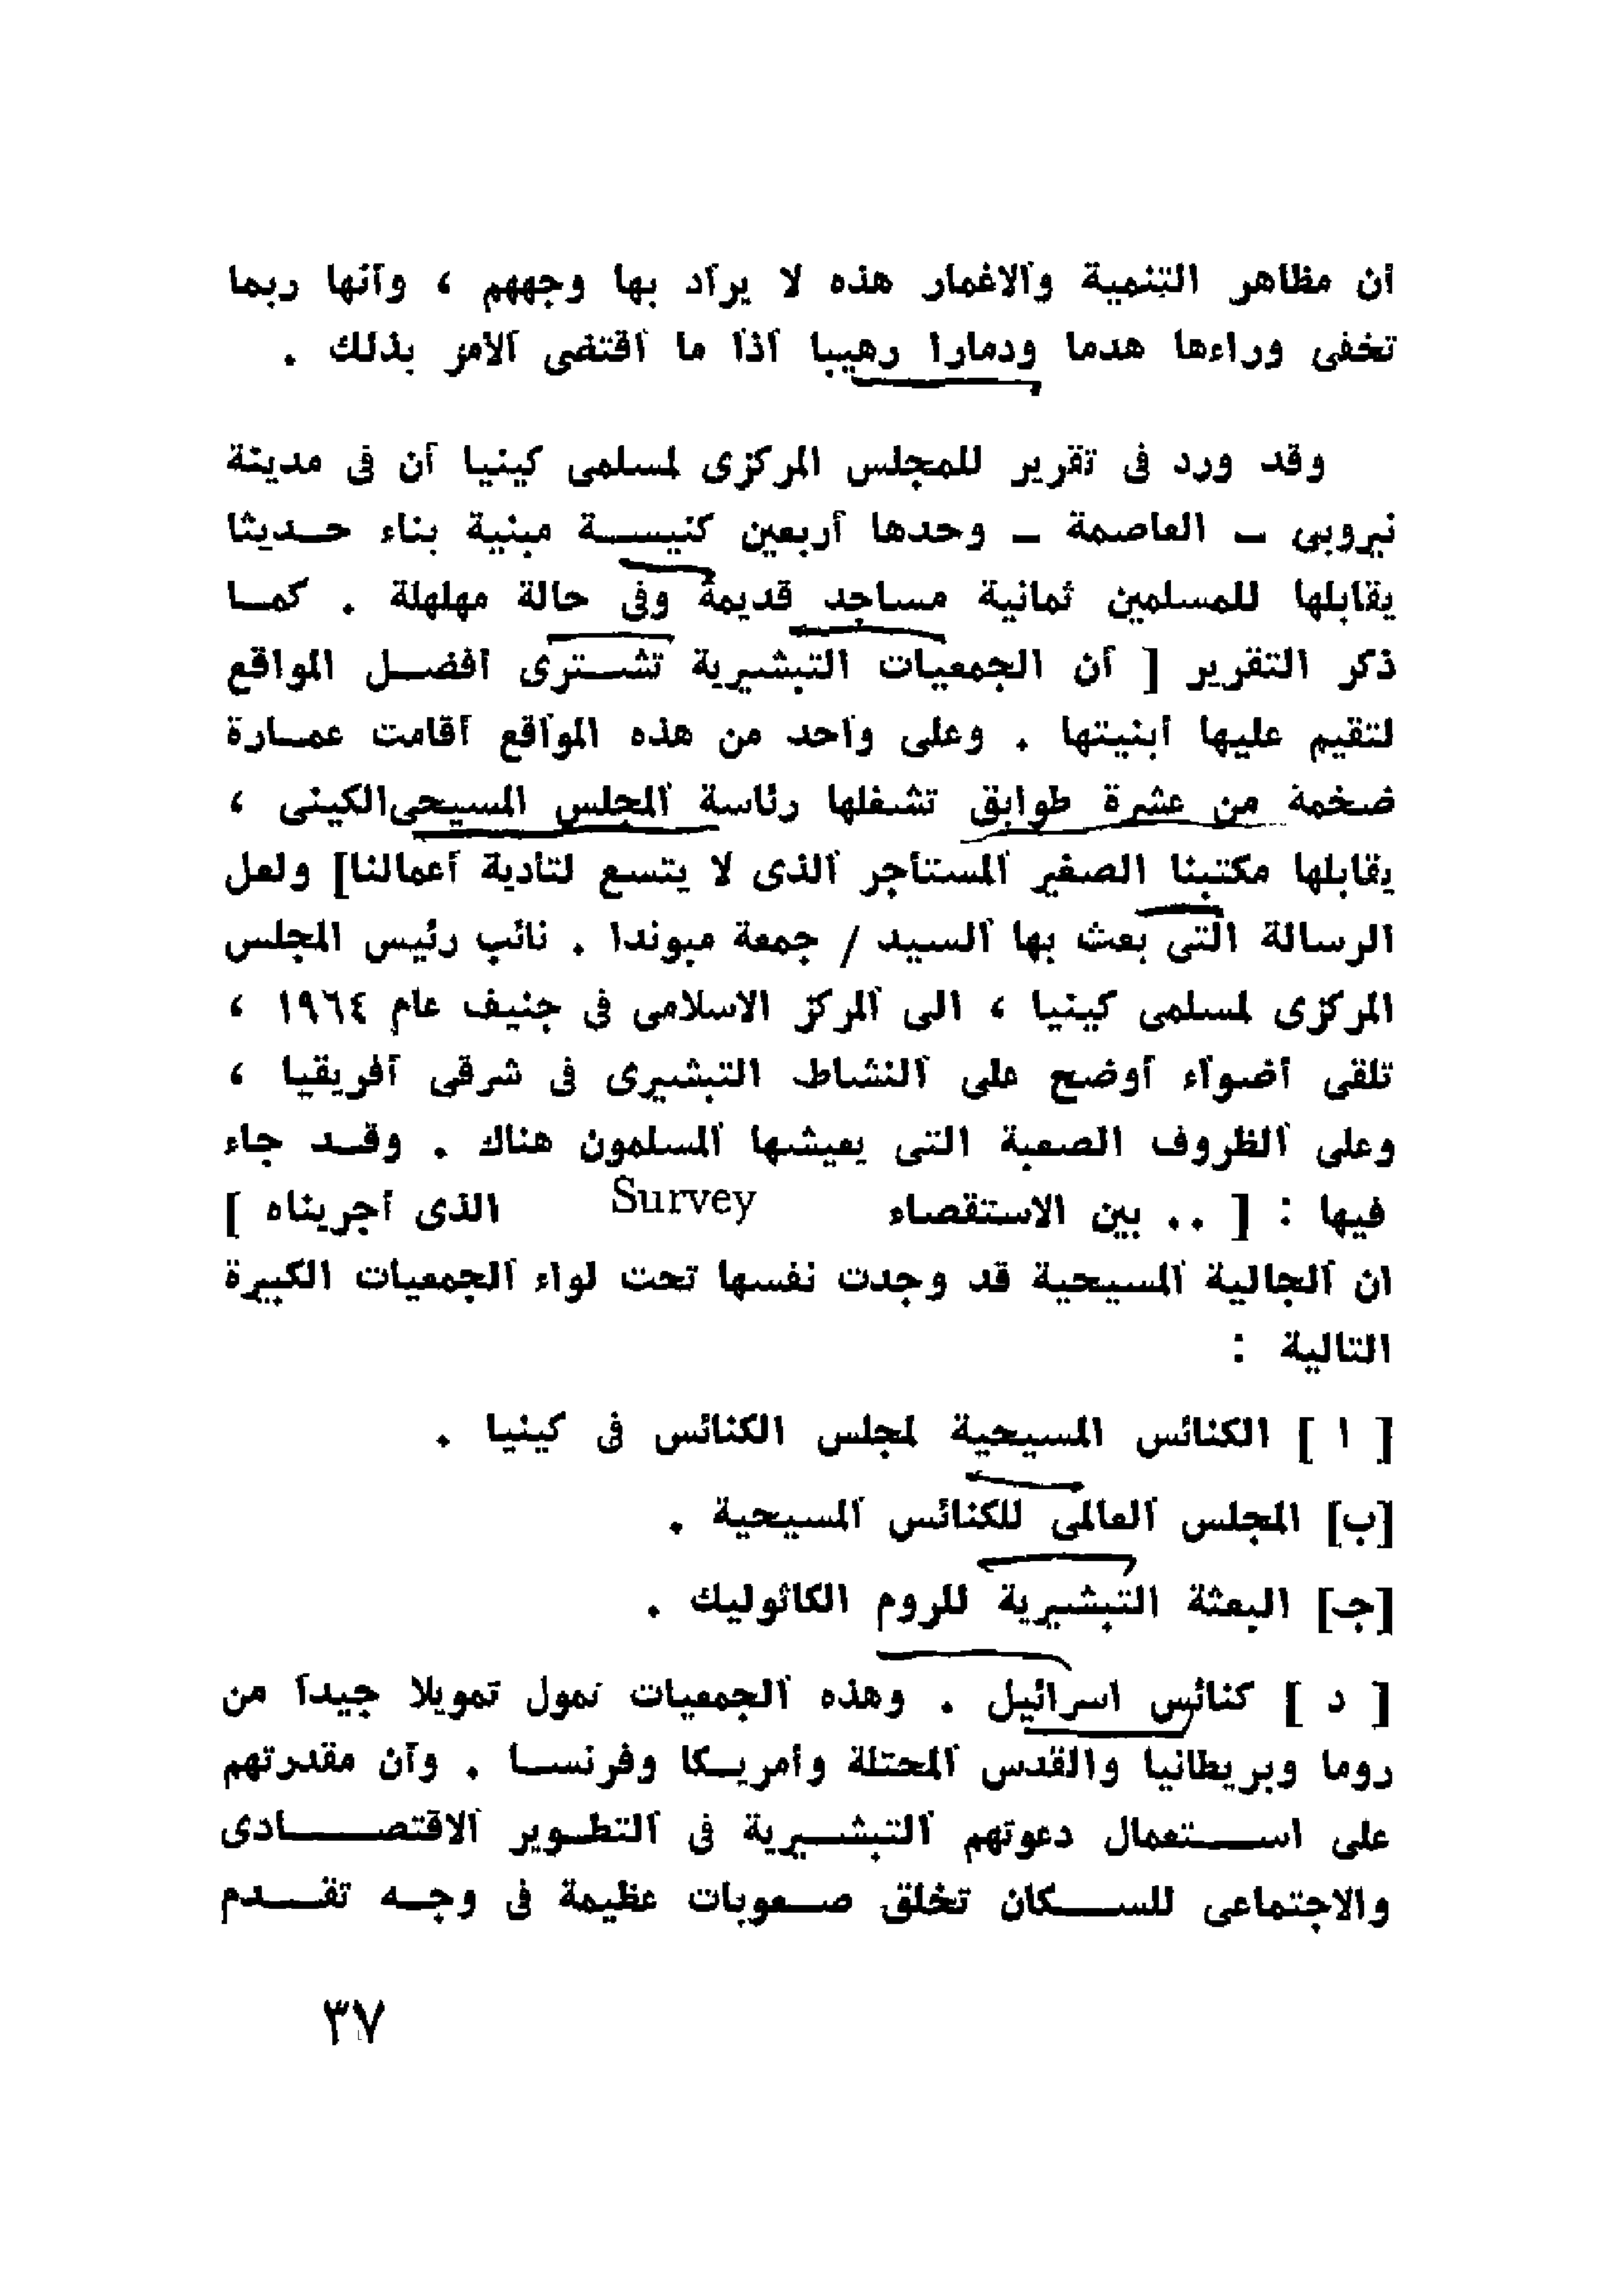 ان مظاهر التنمية والاعمار هذه لا يراد بها وجههم ، وأنها ربما
تخفى وراءها هدما ودمارا رهيبا اذا ما اقتضى الأمر بذلك .
وقد ورد فى تقرير للمجلس المركزى لمسلمى كينيا أن فى مدينة
نيروبى ــ العاصمة ــ وحدها أربعين كنيســـة مبنية بناء حــديثا
يقابلها للمسلمين ثمانية مساجد قديمة وفى حالة مهلهلة . كمــا
ذكر التقرير [ أن الجمعيات التبشيرية تشــترى أفضــل المواقع
لتقيم عليها أبنيتها . وعلى واحد من هذه المواقع أقامت عمــارة
ضخمة من عشرة طوابق تشغلها رئاسة المجلس المسيحى الكينى ،
يقابلها مكتبنا الصغير المستأجر الذى لا يتسع لتأدية أعمالنا] ولعل
الرسالة التى بعث بها السيد / جمعة مبوندا . نائب رئيس المجلس
المركزى لمسلمى كينيا ، الى المركز الاسلامى فى جنيف عام ١٩٦٤ ،
تلقى أضواء أوضح على النشاط التبشيرى فى شرقى أفريقيا ،
وعلى الظروف الصعبة التى يعيشها المسلمون هناك . وقــد جاء
فيها : [ .. بين الاستقصاء Survey الذى أجريناه ]
ان الجالية المسيحية قد وجدت نفسها تحت لواء الجمعيات الكبيرة
التالية :
[ ا ] الكنائس المسيحية لمجلس الكنائس فى كينيا .
[ب] المجلس العالمى للكنائس المسيحية .
[جـ] البعثة التبشيرية للروم الكاثوليك .
[ د ] كنائس اسرائيل . وهذه الجمعيات تمول تمويلا جيدا من
روما وبريطانيا والقدس المحتلة وأمريــكا وفرنســا . وأن مقدرتهم
على اســـتعمال دعوتهم التبشــيرية فى التطــوير الاقتصــــادى
والاجتماعى للســـكان تخلق صــعوبات عظيمة فى وجــه تقـــدم
٣٧